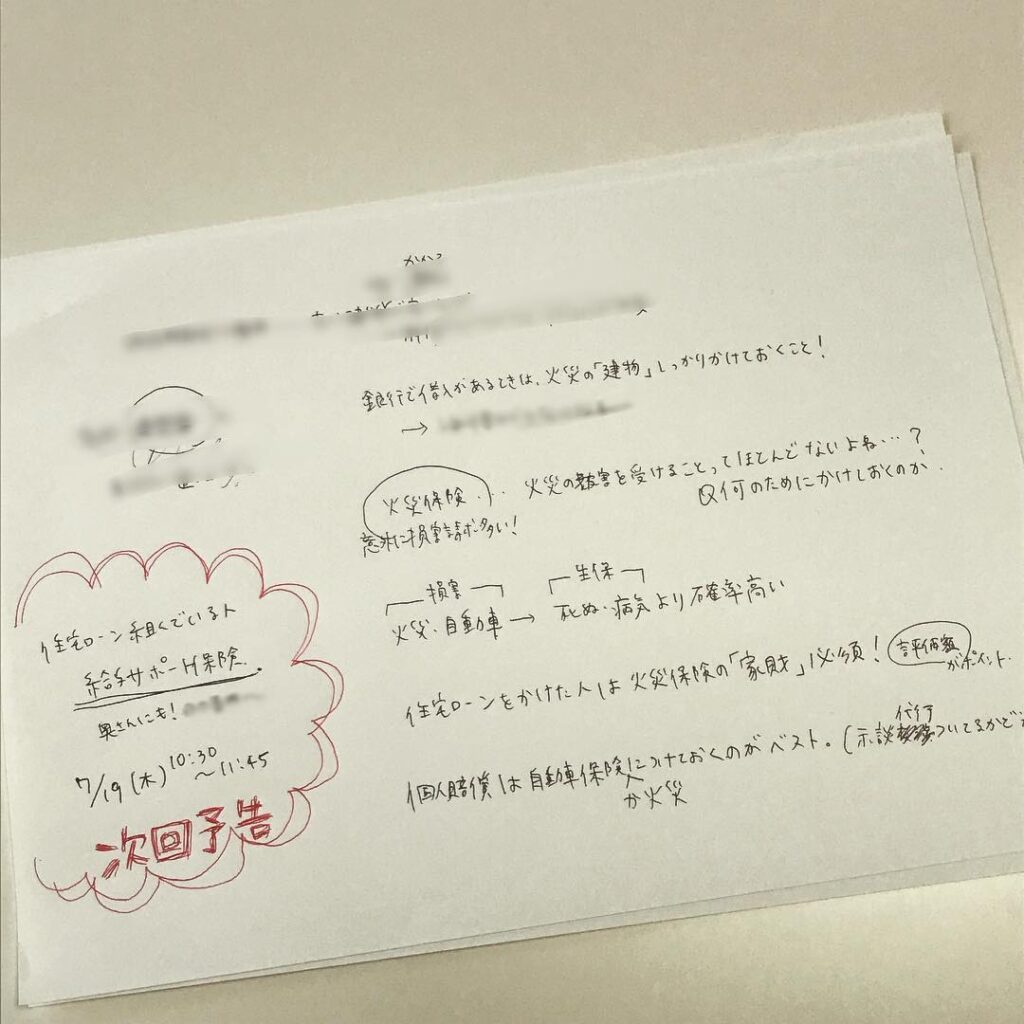 銀行で借入があるときは、火災の「建物」しっかりかけておくこと!
→
火災保険... 火災の被害を受けることってほとんどないよね…?
何のためにかけておくのか、
意外に損害請求多い!
損害 生保
火災・自動車→ 死ぬ・病気より確率高い
住宅ローンをかけた人は火災保険の「家財」必須! 評価額
がポイント.
代行
個人賠償は自動車保険につけておくのがベスト。(示談 ついてるかで
か火災
住宅ローン組んでいる人
給与サポート保険.
奥さんにも!
7/19(木) 10:30
~11:45
次回予告